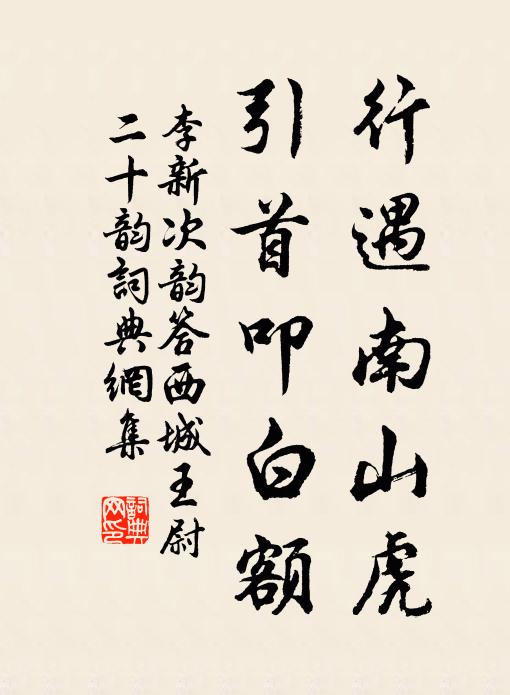 行遇南山虎
引首叩白額
李新次韵答西城王尉
二十韵詞典網集
詞典
网印